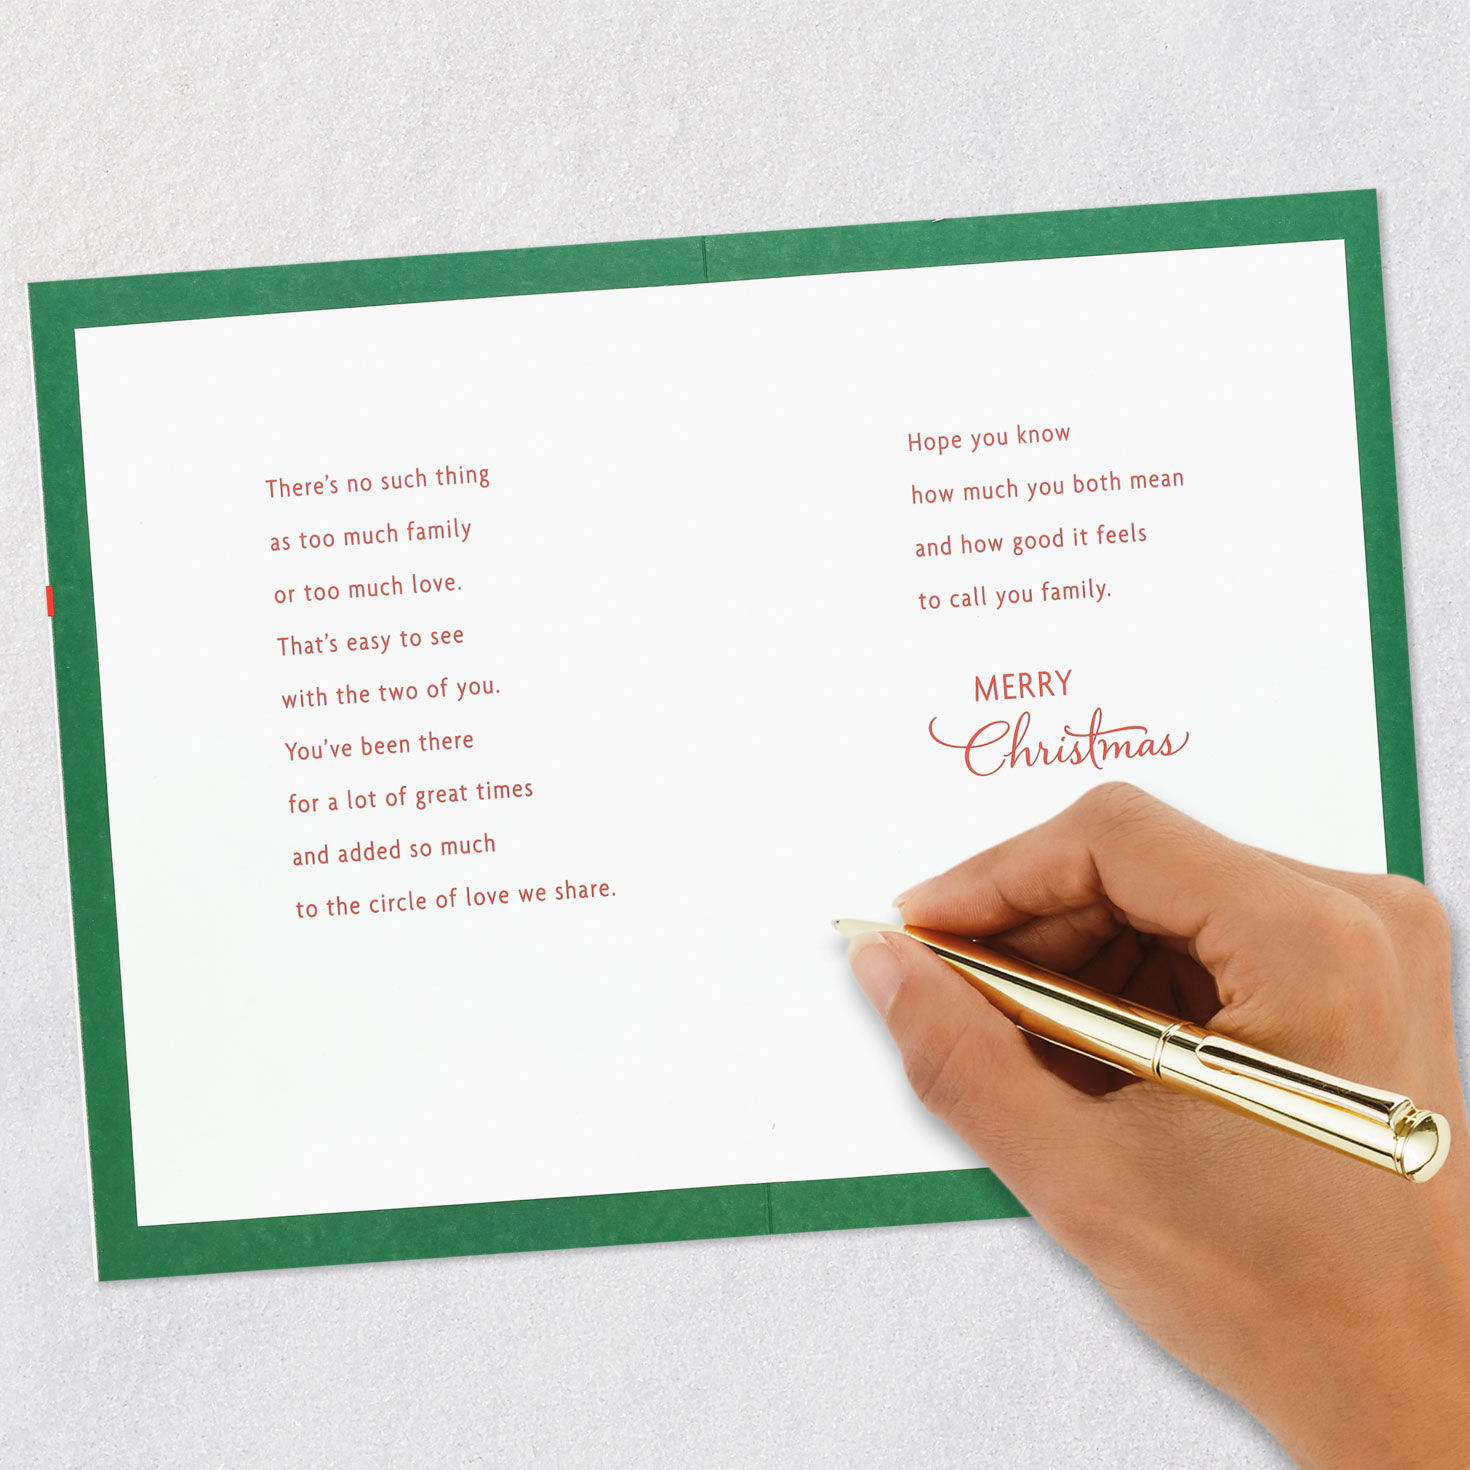 There's no such thing
as too much family
or too much love.
That's easy to see
with the two of you.
You've been there
for a lot of great times
and added so much
to the circle of love we share.
Hope you know
how much you both mean
and how good it feels
to call you family.
MERRY
Christmas